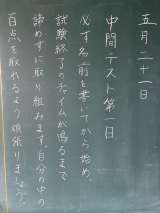 五月二十一日
中間テスト第一日
必ず名前を書いてから始め、
試験終了のチャイムが鳴るまで
諦めずに取り組みます。自分の中の
百点を取れるよう頑張りましょう。